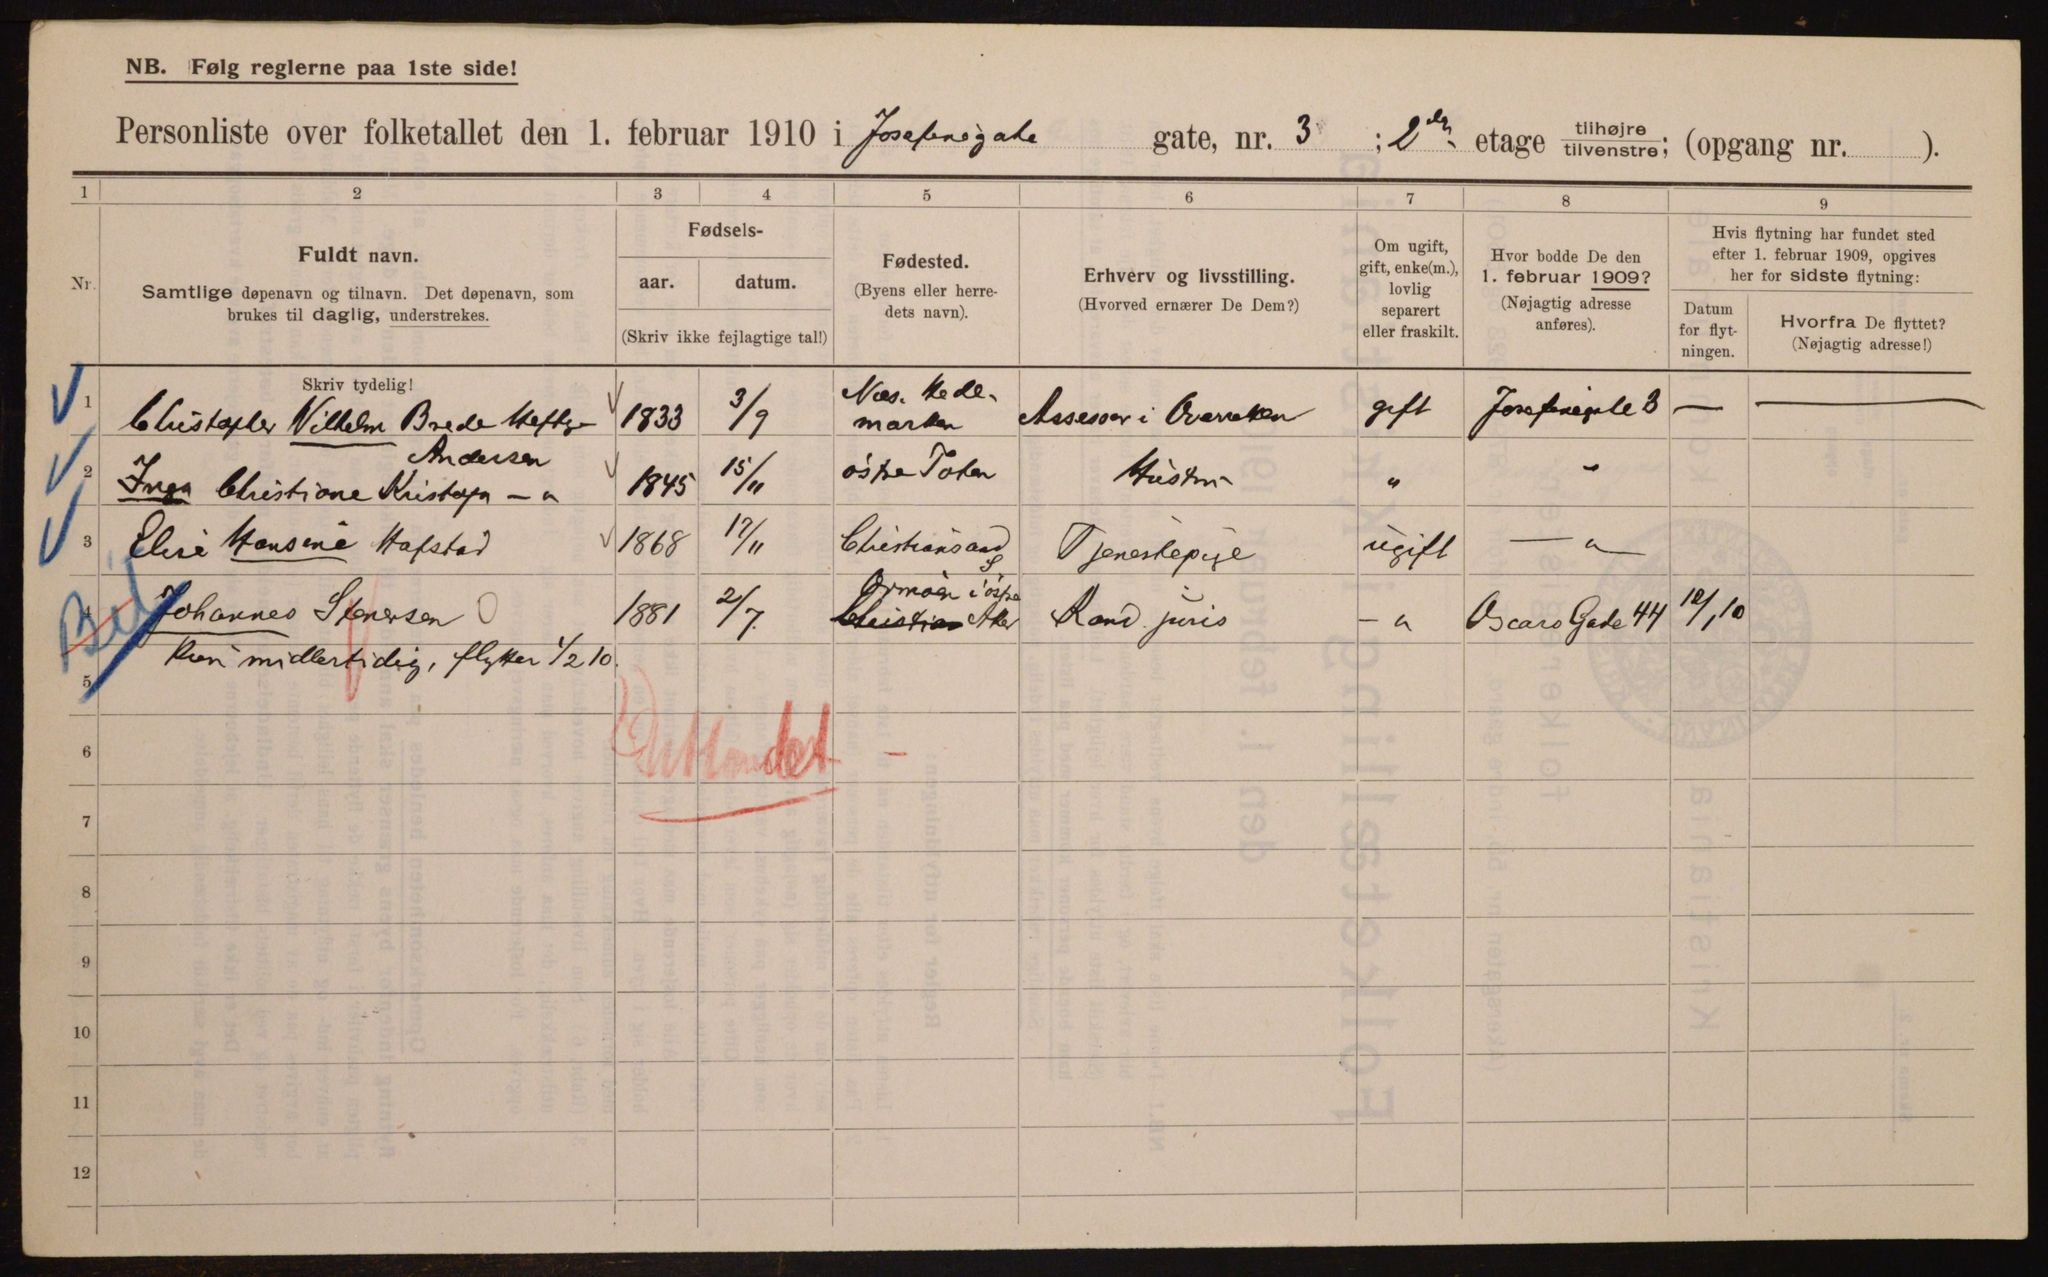 NB. Følg reglerne paa 1ste side!
Personliste over folketallet den 1. februar 1910 i Josefinegate gate, nr. 3 ; 2den etage tilhøjre tilvenstre; (opgang nr. ).
1 2 3 4 5 6 7 8 9
Nr.
Fuldt navn.
Samtlige døpenavn og tilnavn. Det døpenavn, som
brukes til daglig, understrekes.
Fødsels-
aar. datum.
(Skriv ikke fejlagtige tal!)
Fødested.
(Byens eller herre-
dets navn).
Erhverv og livsstilling.
(Hvorved ernærer De Dem?)
Om ugift,
gift, enke(m.),
lovlig
separert
eller fraskilt.
Hvor bodde De den
1. februar 1909?
(Nøjagtig adresse
anføres).
Hvis flytning har fundet sted
efter 1. februar 1909, opgives
her for sidste flytning:
Datum
for flyt-
ningen.
Hvorfra De flyttet?
(Nøjagtig adresse!)
Skriv tydelig!
1 Christopher Vilhelm Brede Heftye 1833 3/9 Næs. Hede-
marken Assessor i Overretten gift Josefinegate 3 —
Andersen
2 Inga Christiane — " 1845 15/11 østre Toten Hustru " "
3 Elise Hansine Hafstad 1868 17/11 Christiansand S Tjenestepige ugift — " —
4 Johannes Stenersen 1881 2/7 Ormøen i østre
Christian Aker Kand. juris — " Oscars Gade 44 10/1 10
Kun midlertidig, flytter 1/2 10.
5
Utlandet —
6
7
8
9
10
11
12